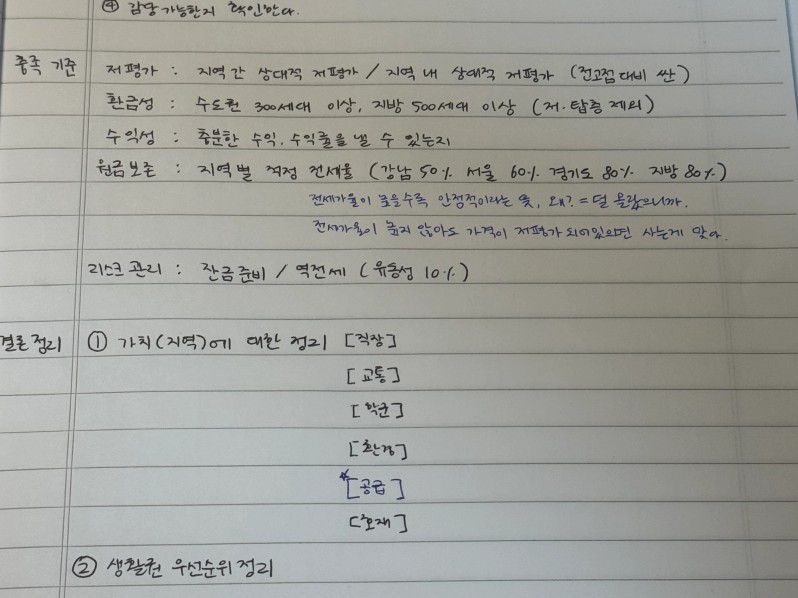 ④ 감당가능한지 확인한다.
충족 기준 저평가 : 지역간 상대적 저평가 / 지역 내 상대적 저평가 (전고점대비 싼)
환금성 : 수도권 300세대 이상, 지방 500세대 이상 (저·탑층 제외)
수익성 : 충분한 수익, 수익률을 낼 수 있는지
원금보존 : 지역별 적정 전세율 (강남 50% 서울 60% 경기도 80% 지방 80%)
전세가율이 높을수록 안정적이라는 뜻, 왜? = 덜 올랐으니까.
전세가율이 높지 않아도 가격이 저평가 되어있으면 사는게 맞아.
리스크 관리 : 잔금준비 / 역전세 (유동성 10%)
결론정리 ① 가치(지역)에 대한 정리 [직장]
[교통]
[학군]
[환경]
*[공급]
[호재]
② 생활권 우선순위 정리